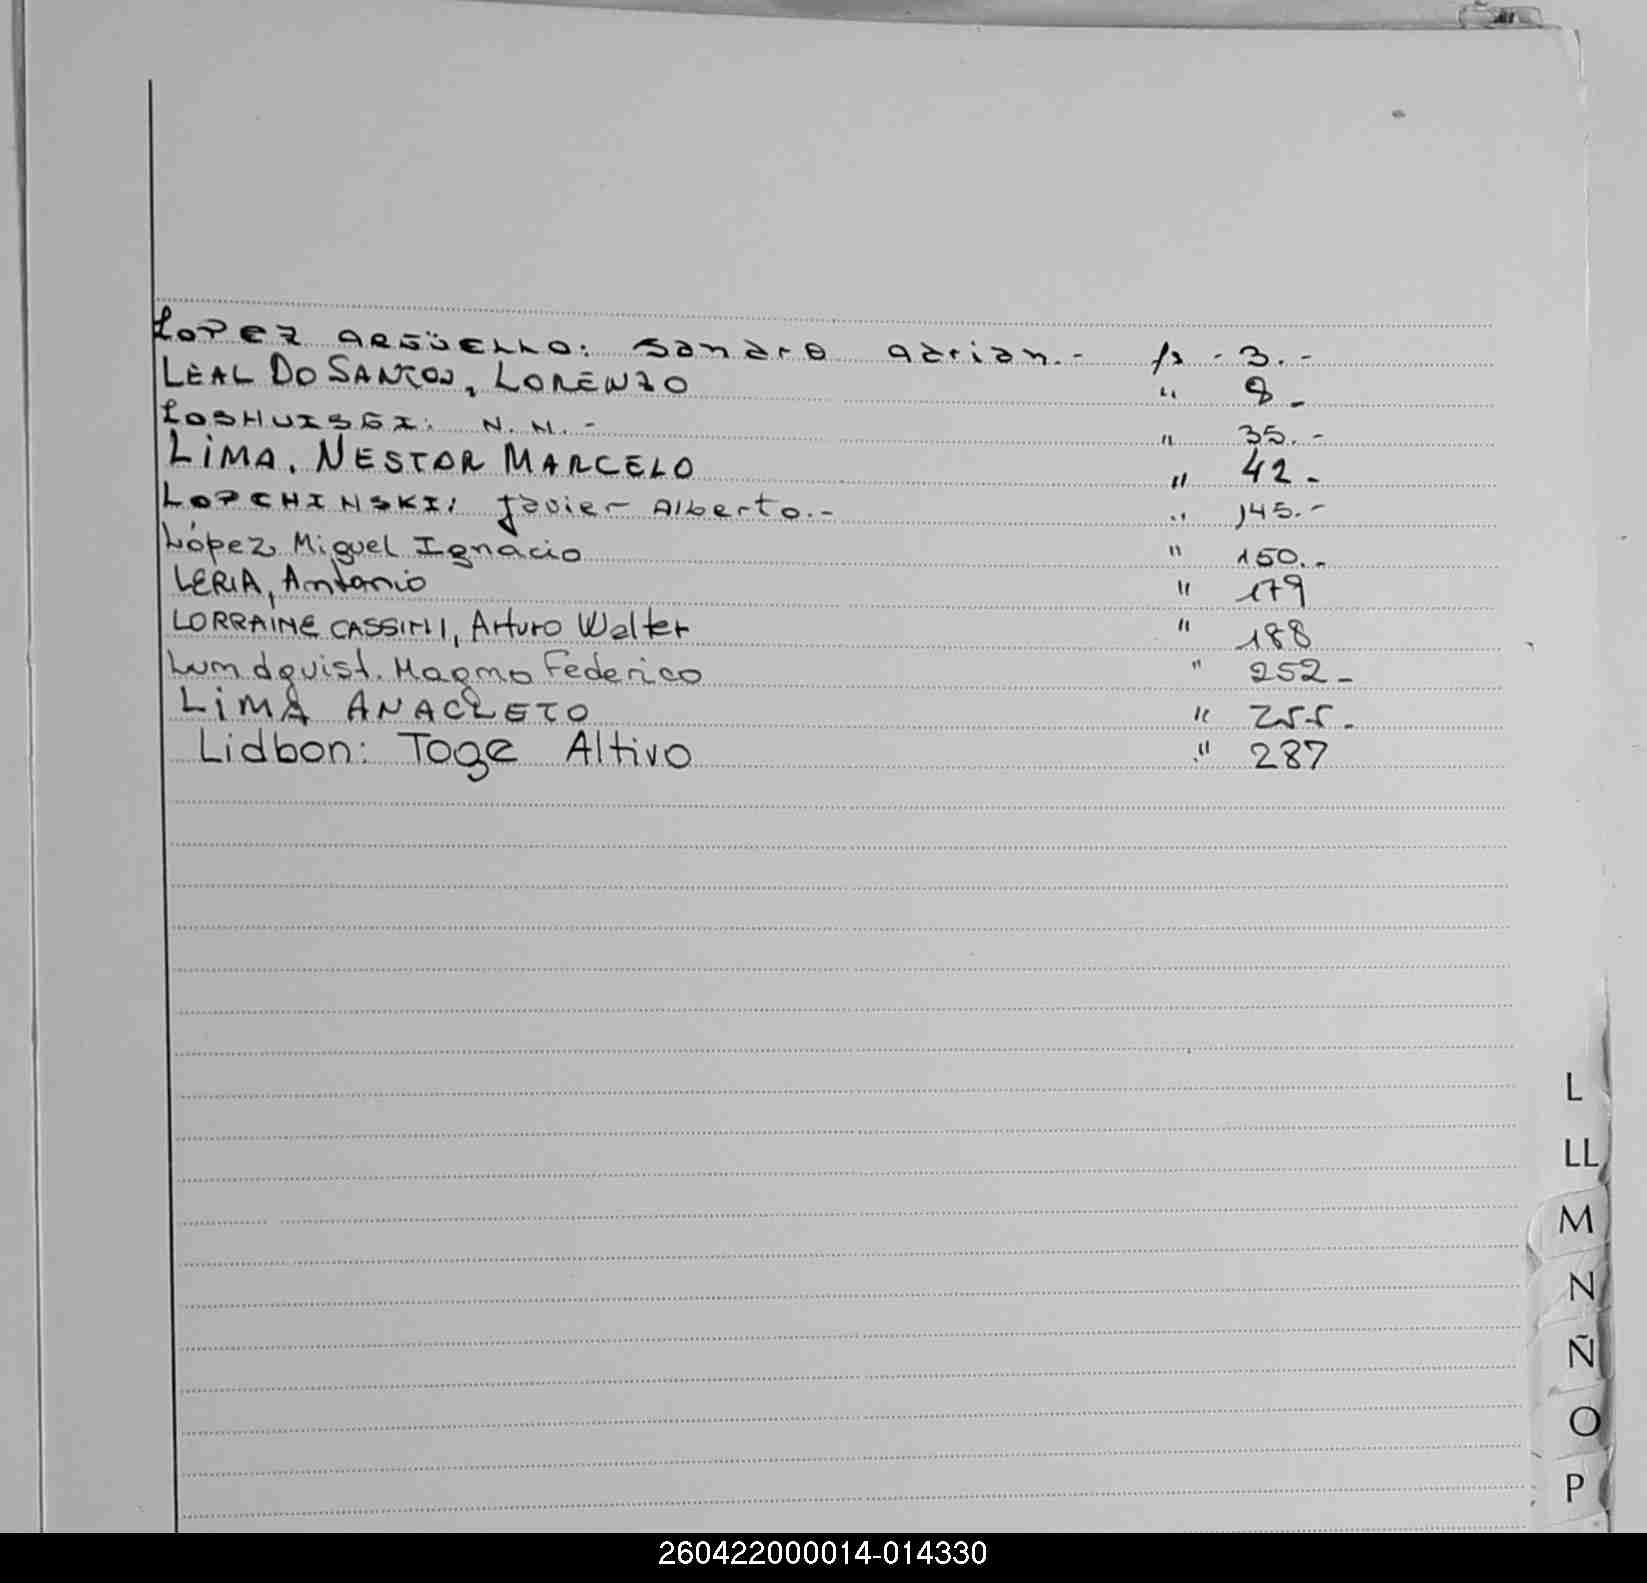 LOPEZ ARGÜELLO: Sandro Adrian.- fs - 3.-
LEAL DO SANTOS, LORENZO " 8-
LOSHUISGI: N.N.- " 35.-
LIMA, NESTOR MARCELO " 42-
LOPCHINSKI: Javier Alberto.- " 145.-
López, Miguel Ignacio " 150.-
LERIA, Antonio " 179
LORRAINE CASSINI, Arturo Walter " 188
Lundquist. Magno Federico " 252-
LIMA ANACLETO " 255-
Lidbon: Toge Altivo " 287
L
LL
M
N
Ñ
O
P
260422000014-014330